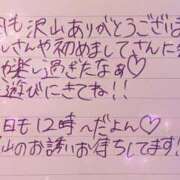 も沢山ありがとうござい
さんや初めましてさんに
楽し過ぎたなぁ♡
遊びにきてね!!
日も12時〜だよん♡
山のお誘いお待ちしてます!